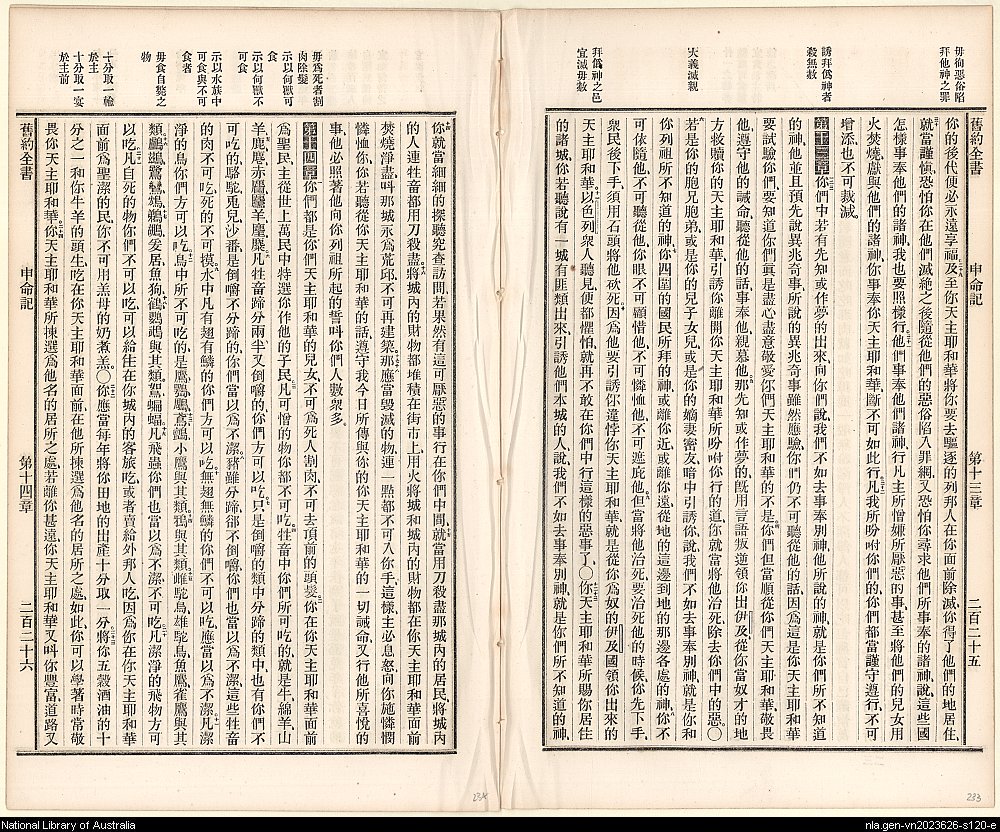 毋徇惡俗陷
拜他神之罪
誘拜僞神者
殺無赦
大義滅親
拜僞神之邑
宜滅毋赦
舊約全書
申命記
第十三章
二百二十五
你的後代便必永遠享福及至你天主耶和華將你要去驅逐的列邦人在你面前除滅你得了他們的地居住
就當謹愼恐怕你在他們滅絶之後隨從他們的惡俗陷入罪網又恐怕你尋求他們所事奉的諸神說這些國
怎樣事奉他們的諸神我也要照樣行他們事奉他們諸神行凡主所憎嫌所厭惡的事甚至將他們的兒女用
火焚燒獻與他們的諸神你事奉你天主耶和華斷不可如此行凡我所吩咐你們的你們都當謹守遵行不可
增添也不可裁減
第十三章你們中若有先知或作夢的出來向你們說我們不如去事奉別神他所說的神就是你們所不知道
的神他並且預先說異兆奇事所說的異兆奇事雖然應驗你們仍不可聽從他的話因爲這是你天主耶和華
要試驗你們要知道你們眞是盡心盡意敬愛你們天主耶和華的不是你們但當順從你們天主耶和華敬畏
他遵守他的誡命聽從他的話事奉他親慕他那先知或作夢的旣用言語叛逆領你出伊及從你當奴才的地
方救贖你的天主耶和華引誘你離開你天主耶和華所吩咐你行的道你就當將他治死除去你們中的惡〇
若是你的胞兄胞弟或是你的兒子女兒或是你的嫡妻密友暗中引誘你說我們不如去事奉別神就是你和
你列祖所不知道的神你四圍的國民所拜的神或離你近或離你遠從地的這邊到地的那邊各處的神你不
可依隨他不可聽從他你眼不可顧惜他不可憐恤他不可遮庇他但當將他治死要治死他的時候你先下手
衆民後下手須用石頭將他砍死因爲他要引誘你違悖你天主耶和華就是從你爲奴的伊及國領你出來的
天主耶和華以色列衆人聽見便都懼怕就再不敢在你們中行這樣的惡事了〇你天主耶和華所賜你居住
的諸城你若聽說有一城有匪類出來引誘他們本城的人說我們不如去事奉別神就是你們所不知道的神
你就當細細的探聽究查訪問若果然有這可厭惡的事行在你們中間就當用刀殺盡那城內的居民將城內
的人連牲畜都用刀殺盡將城內的財物都堆積在街市上用火將城和城內的財物都在你天主耶和華面前
焚燒淨盡呌那城永爲荒邱不可再建築那應當毀滅的物連一點都不可入你手這樣主必息怒向你施憐憫
憐恤你你若聽從你天主耶和華的話遵守我今日所傳與你的你天主耶和華的一切誡命又行他所喜悅的
事他必照著他向你列祖所起的誓呌你們人數衆多
第十四章你們都是你們天主耶和華的兒女不可爲死人割肉不可去頂前的頭髮在你天主耶和華面前
爲聖民主從世上萬民中特選你作他的子民凡可憎的物你都不可吃牲畜中你們所可吃的就是牛綿羊山
可吃的駱駝兎兒沙番是倒嚼不分蹄的你們當以爲不潔豬雖分蹄卻不倒嚼你們也當以爲不潔這些牲畜
的肉不可吃死的不可摸水中凡有翅有鱗的你們方可以吃無翅無鱗的你們不可以吃應當以爲不潔凡潔
以吃凡自死的物你們不可以吃可以給住在你城內的客旅吃或者賣給外邦人吃因爲你在你天主耶和華
面前爲聖潔的民你不可用羔母的奶煮羔〇你應當每年將你田地的出產十分取一分將你五穀酒油的十
分之一和你牛羊的頭生吃在你天主耶和華面前在他所揀選爲他名的居所之處如此你可以學著時常敬
畏你天主耶和華你天主耶和華所揀選爲他名的居所之處若離你甚遠你天主耶和華又呌你豐富道路又
毋爲死者割
肉除髮
示以何獸可
食
示以何獸不
可食
示以水族中
可食與不可
食者
毋食自斃之
物
十分取一檐
於主
十分取一宴
於主前
舊約全書
申命記
第十四章
二百二十六
234
233
National Library of Australia
nla.gen-vn2023626-s120-e